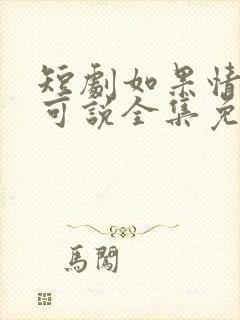 短劇如果情
可說全集免
馬闖